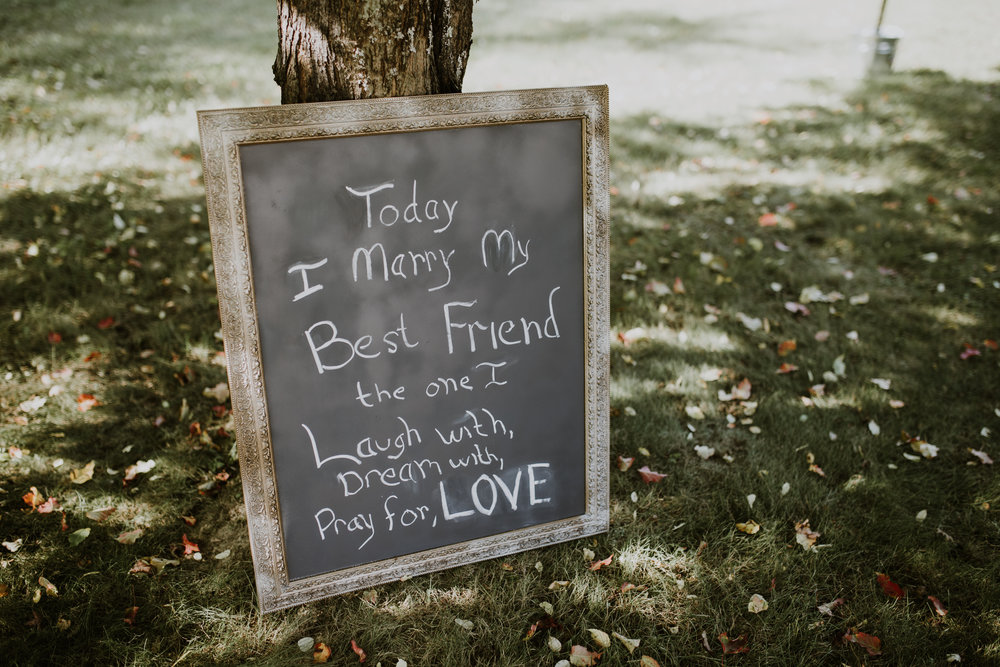 Today
I Marry My
Best Friend
the one I
Laugh with,
Dream with,
Pray for, LOVE